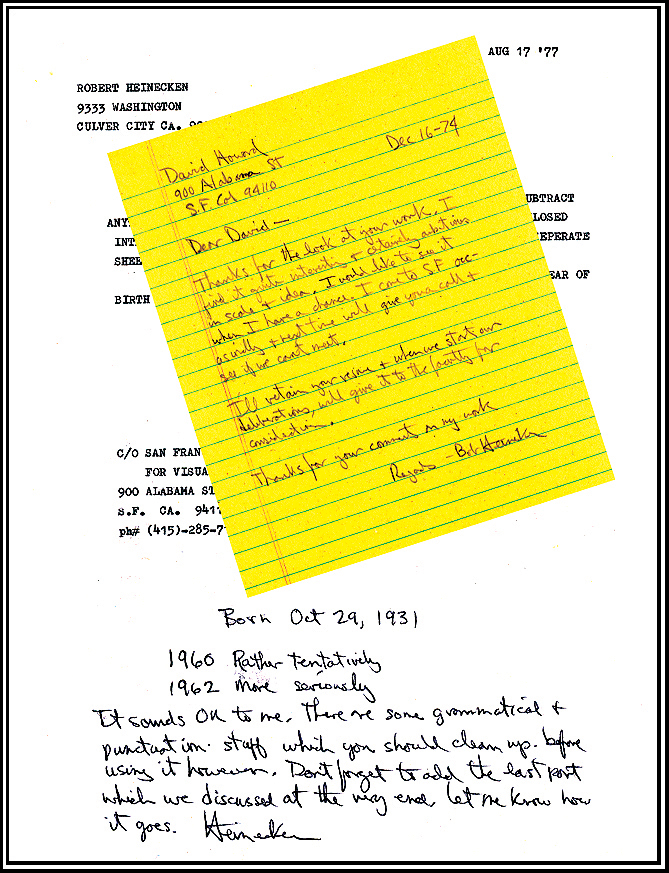 AUG 17 '77
ROBERT HEINECKEN
9333 WASHINGTON
CULVER CITY CA.
David Howard
900 Alabama St
S.F. Cal 94110
Dec 16-74
Dear David —
Thanks for the look at your work. I
find it quite interesting & extremely ambitious
in scale & idea. I would like to see it
when I have a chance. I come to S.F. occ-
asionally & next time will give you a call &
see if we can't meet.
I'll retain your resume & when we start our
deliberations, will give it to the faculty for
consideration.
Thanks for your comments on my work
Regards — Bob Heinecken
ANY
INT
SHEE
BIRTH
UBTRACT
LOSED
EPERATE
EAR OF
C/O SAN FRAN
FOR VISUA
900 ALABAMA ST
S.F. CA. 941
ph# (415)-285-7
Born Oct 29, 1931
1960 Rather tentatively
1962 More seriously
It sounds OK to me. There are some grammatical &
punctuation stuff which you should clean up before
using it however. Don't forget to add the last part
which we discussed at the very end. Let me know how
it goes. Heinecken